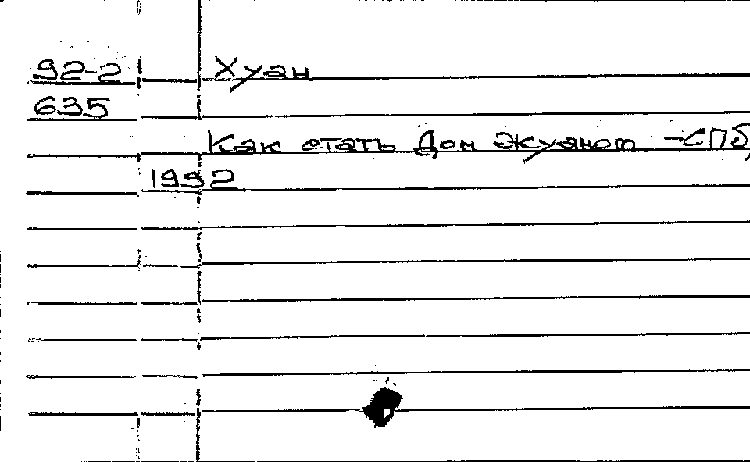 92-2 Хуан
635
Как стать Дон Жуаном -СПб,
1992